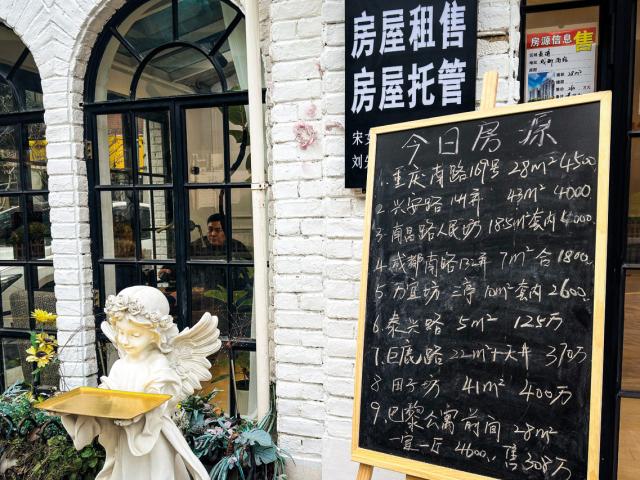 房屋租售
房屋托管
房源信息 售
今日房源
1. 重庆南路169号 28m² 4500
2. 兴安路141弄 43m² 4000
3. 南昌路人民坊 18.5m²套内
4. 成都南路 7m² 合 1800
5 万宜坊 三亭 10m²套内 2600
6. 泰兴路 5m² 125万
7. 白鹿路 22m²+天井 370万
8. 田子坊 41m² 400万
9. 巴黎公寓 前间 28m²
一室一厅 4600.. 售 308万